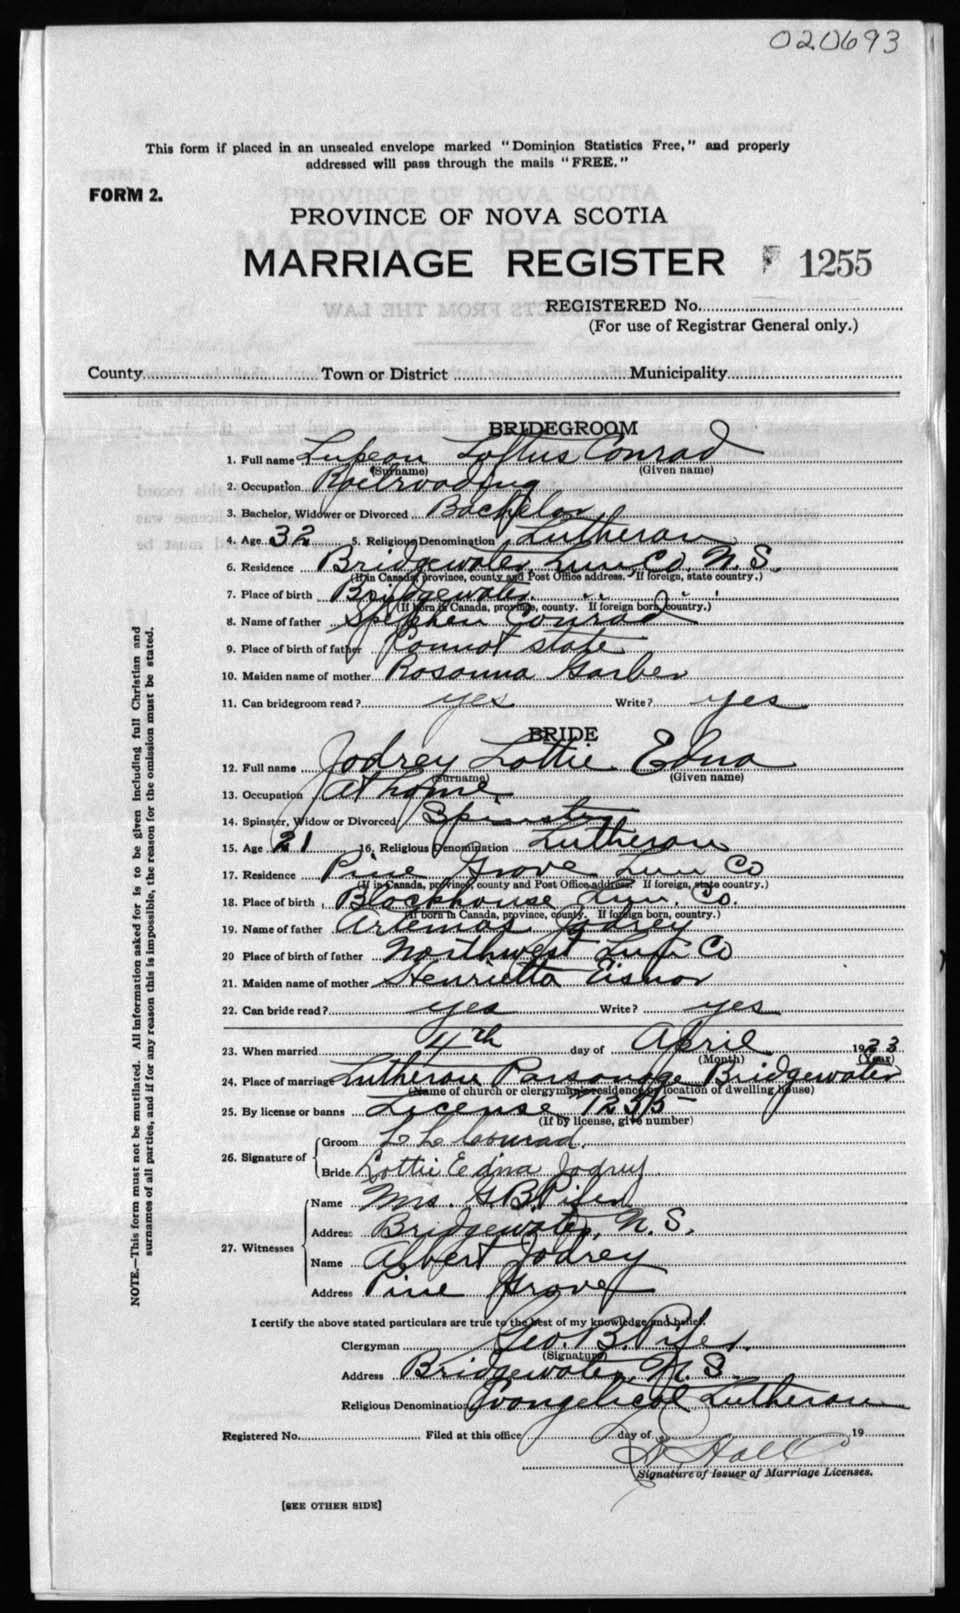 020693
This form if placed in an unsealed envelope marked "Dominion Statistics Free," and properly
addressed will pass through the mails "FREE."
FORM 2.
PROVINCE OF NOVA SCOTIA
MARRIAGE REGISTER 1255
REGISTERED No.
(For use of Registrar General only.)
County Town or District Municipality
BRIDEGROOM
1. Full name Lupeon Loftus Conrad
(Surname) (Given name)
2. Occupation Railroading
3. Bachelor, Widower or Divorced Bachelor
4. Age 32 5. Religious Denomination Lutheran
6. Residence Bridgewater, Lun. Co. N. S.
(If in Canada, province, county and Post Office address. If foreign, state country.)
7. Place of birth Bridgewater
(If born in Canada, province, county. If foreign born, country.)
8. Name of father Stephen Conrad
9. Place of birth of father Cannot state
10. Maiden name of mother Rosanna Garber
11. Can bridegroom read? yes Write? yes
BRIDE
12. Full name Jodrey Lottie Edna
(Surname) (Given name)
13. Occupation at home
14. Spinster, Widow or Divorced Spinster
15. Age 21 16. Religious Denomination Lutheran
17. Residence Pine Grove Lun Co
(If in Canada, province, county and Post Office address. If foreign, state country.)
18. Place of birth Blockhouse Lun. Co.
(If born in Canada, province, county. If foreign born, country.)
19. Name of father Artemas Jodrey
20 Place of birth of father Northwest Lun Co
21. Maiden name of mother Henrietta Eisnor
22. Can bride read? yes Write? yes
23. When married 4th day of April 1933
(Month) (Year)
24. Place of marriage Lutheran Parsonage Bridgewater
(Name of church or clergyman's residence by location of dwelling house)
25. By license or banns License 1255
(If by license, give number)
26. Signature of Groom L L Conrad.
Bride Lottie Edna Jodrey
27. Witnesses Name Mrs. G. B. Pifer
Address Bridgewater, N. S.
Name Albert Jodrey
Address Pine Grove
I certify the above stated particulars are true to the best of my knowledge and belief.
Clergyman Geo. B. Pifer.
(Signature)
Address Bridgewater, N. S.
Religious Denomination Evangelical Lutheran
Registered No. Filed at this office day of 19
Signature of Issuer of Marriage Licenses.
[SEE OTHER SIDE]
NOTE.—This form must not be mutilated. All information asked for is to be given including full Christian and
surnames of all parties, and if for any reason this is impossible, the reason for the omission must be stated.